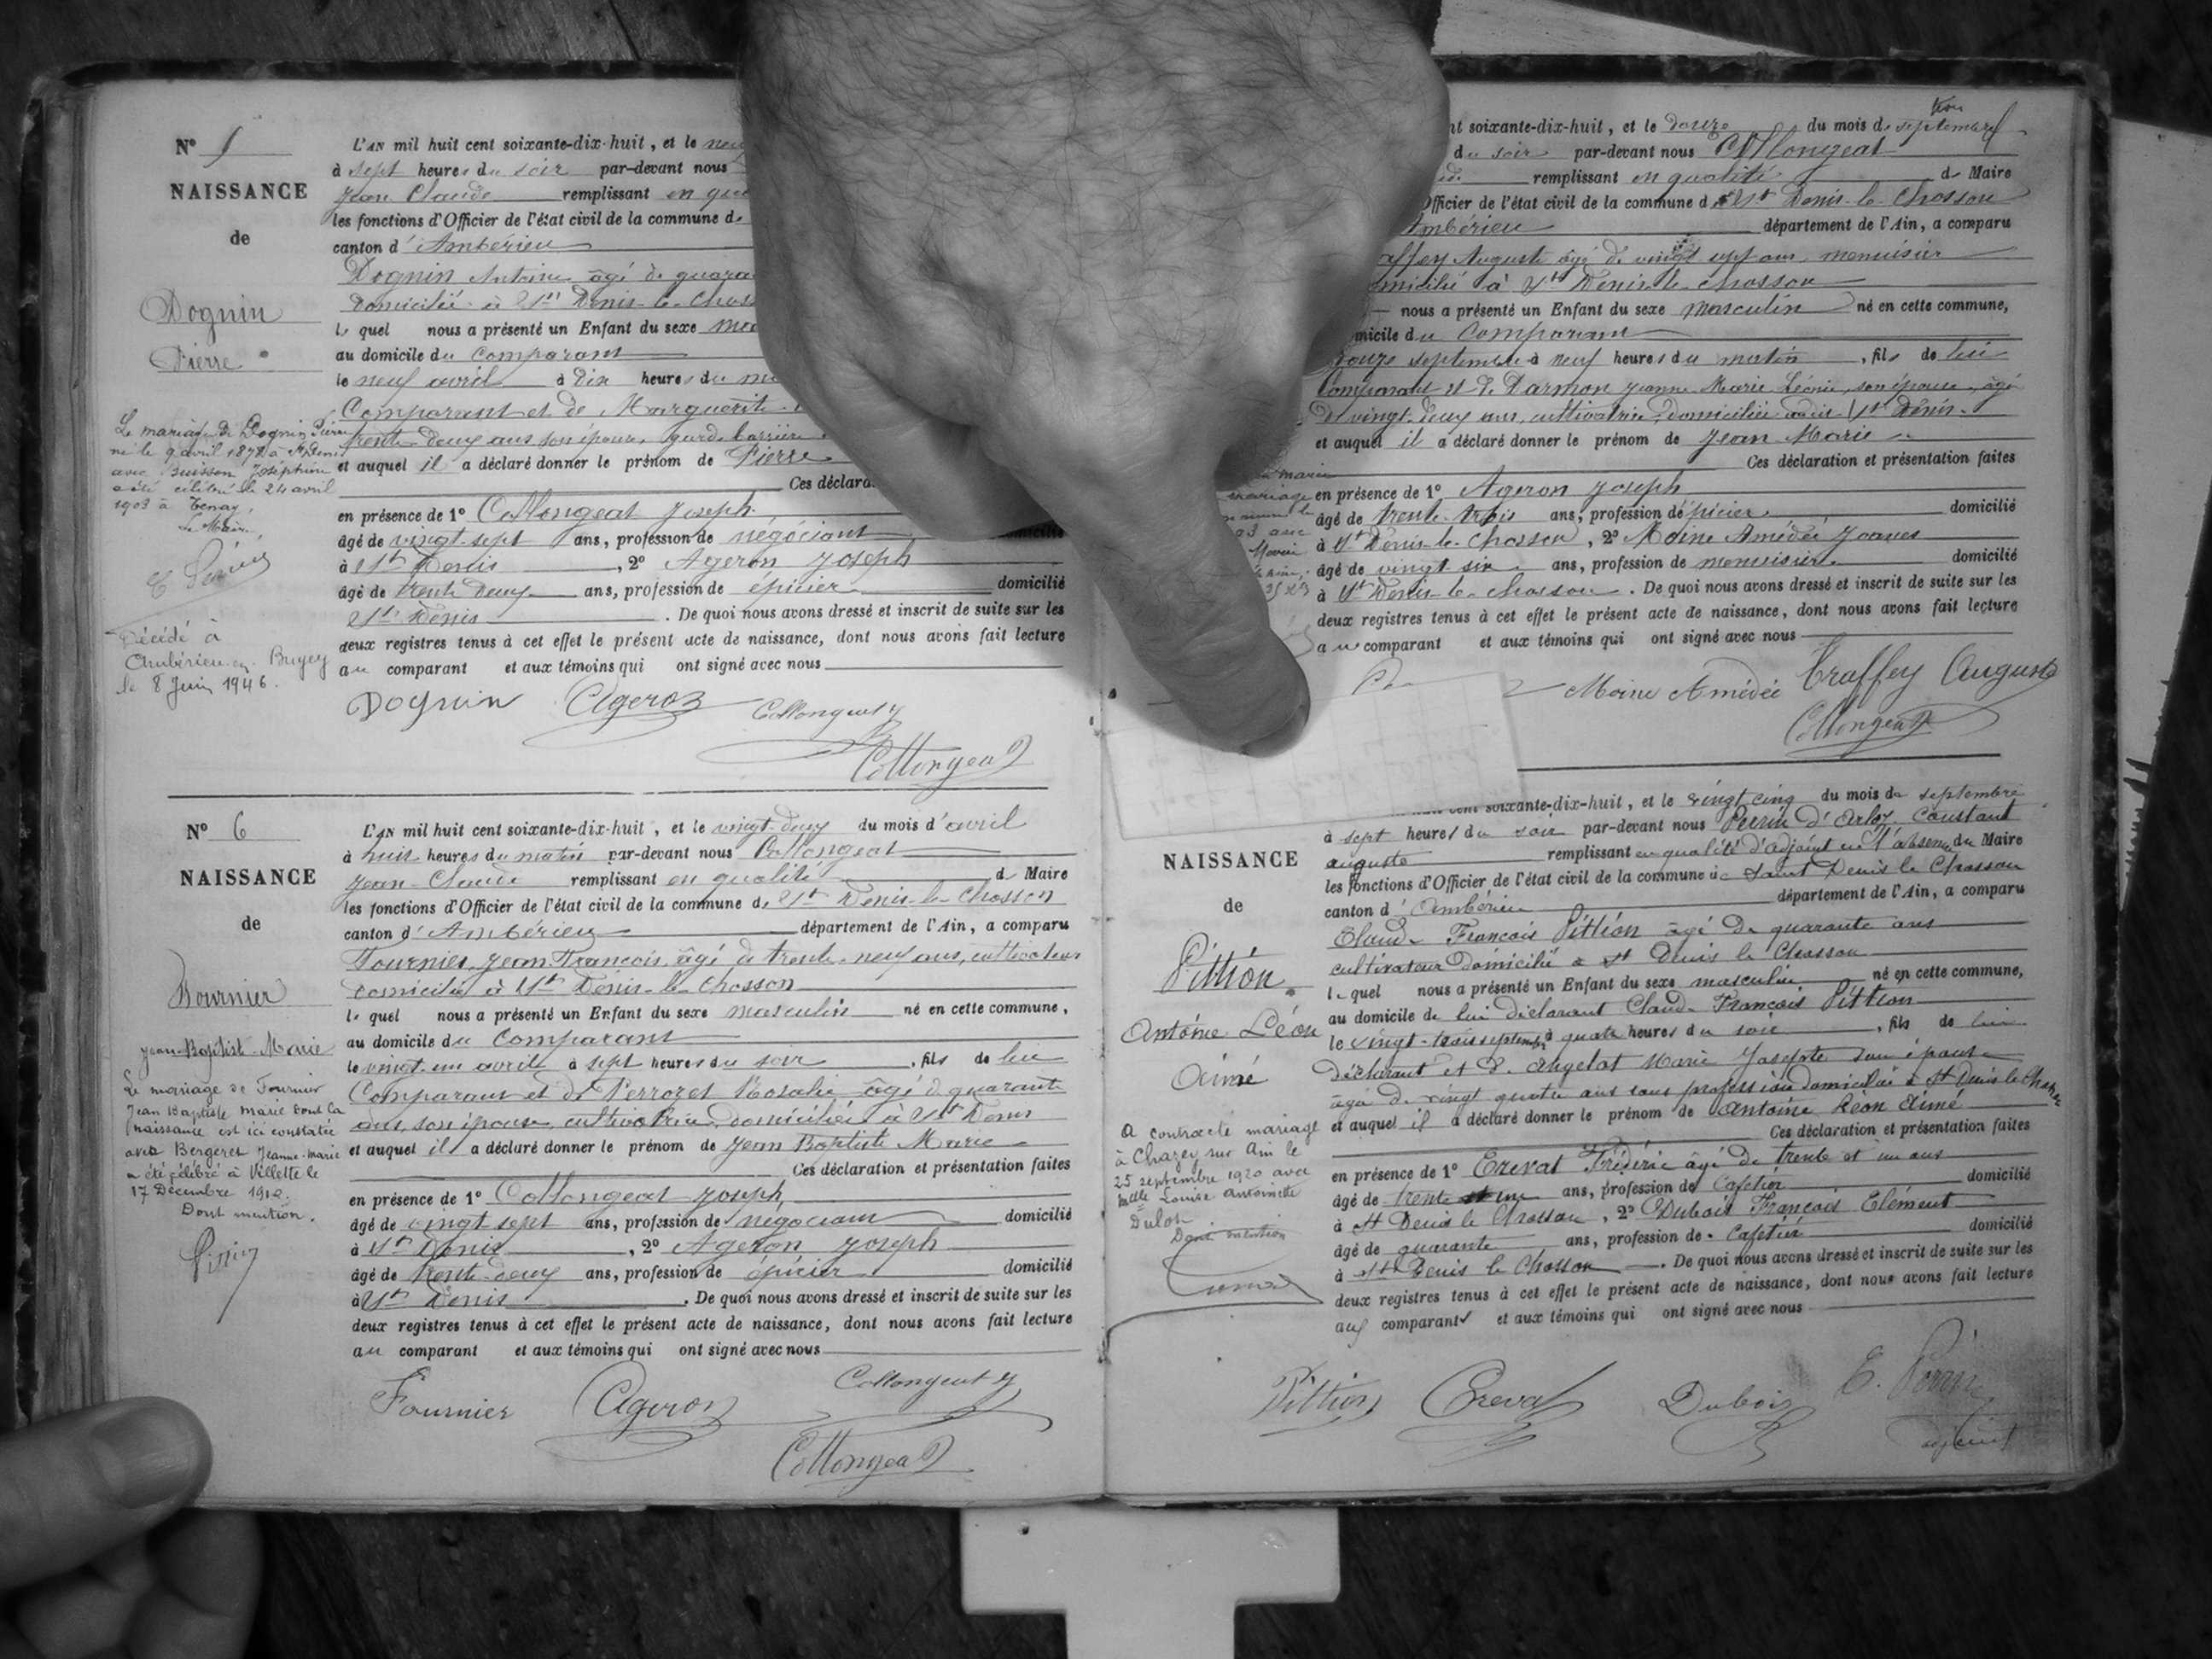 N° 5
NAISSANCE
de
Dognin
Pierre
Le mariage de Dognin Pierre
né le 9 avril 1878 à St Denis
avec Buisson Joséphine
a été célébré le 24 avril
1903 à Tenay,
Le Maire,
Décédé à
Ambérieu-en-Bugey
le 8 Juin 1946.
L'AN mil huit cent soixante-dix-huit, et le neuf
à sept heures du soir par-devant nous
Jean Claude remplissant en
les fonctions d'Officier de l'état civil de la commune de
canton d'Ambérieu
Dognin Antoine âgé de
domicilié à St Denis-le-
le quel nous a présenté un Enfant du sexe
au domicile du Comparant
le neuf avril à dix heures du
Comparant et de Marguerite
trente-deux ans son épouse, garde barrière
et auquel il a déclaré donner le prénom de Pierre
Ces
en présence de 1° Collongeat Joseph
âgé de vingt-sept ans, profession de négociant domicilié
à St Denis, 2° Ageron Joseph
âgé de trente deux ans, profession de épicier domicilié
St Denis. De quoi nous avons dressé et inscrit de suite sur les
deux registres tenus à cet effet le présent acte de naissance, dont nous avons fait lecture
au comparant et aux témoins qui ont signé avec nous
Dognin Ageron Collongeat J
Collongeat
N° 6
NAISSANCE
de
Fournier
Jean-Baptiste-Marie
Le mariage de Fournier
Jean Baptiste Marie dont la
naissance est ici constatée
avec Bergeret Jeanne-Marie
a été célébré à Villette le
17 Décembre 1912.
Dont mention.
L'AN mil huit cent soixante-dix-huit, et le vingt-deux du mois d'avril
à huit heures du matin par-devant nous Collongeat
Jean-Claude remplissant en qualité de Maire
les fonctions d'Officier de l'état civil de la commune de St Denis-le-Chosson
canton d'Ambérieu département de l'Ain, a comparu
Fournier Jean François, âgé de trente-neuf ans, cultivateur
domicilié à St Denis-le-Chosson
le quel nous a présenté un Enfant du sexe masculin né en cette commune,
au domicile du Comparant
le vingt-un avril à sept heures du soir, fils de lui
Comparant et de Perrozet Rosalie âgé de quarante
ans, son épouse cultivatrice, domiciliée à St Denis
et auquel il a déclaré donner le prénom de Jean Baptiste Marie
Ces déclaration et présentation faites
en présence de 1° Collongeat Joseph
âgé de vingt sept ans, profession de négociant domicilié
à St Denis, 2° Ageron Joseph
âgé de trente-deux ans, profession de épicier domicilié
à St Denis. De quoi nous avons dressé et inscrit de suite sur les
deux registres tenus à cet effet le présent acte de naissance, dont nous avons fait lecture
au comparant et aux témoins qui ont signé avec nous
Fournier Ageron Collongeat J
Collongeat
soixante-dix-huit, et le douze du mois de septembre
du soir par-devant nous Collongeat
remplissant en qualité de Maire
Officier de l'état civil de la commune de St Denis-le-Chosson
Ambérieu département de l'Ain, a comparu
Auguste âgé de vingt sept ans, menuisier
domicilié à St Denis-le-Chosson
nous a présenté un Enfant du sexe masculin né en cette commune,
domicile du Comparant
douze septembre à neuf heures du matin, fils de lui
Comparant et de Darmon Jeanne Marie Léonie, son épouse, âgé
de vingt-deux ans, cultivatrice, domiciliée audit St Denis.
et auquel il a déclaré donner le prénom de Jean-Marie
Ces déclaration et présentation faites
en présence de 1° Ageron Joseph
âgé de trente-trois ans, profession d'épicier domicilié
à St Denis-le-Chosson, 2° Moine Amédée Joanes
âgé de vingt six ans, profession de menuisier domicilié
à St Denis-le-Chosson. De quoi nous avons dressé et inscrit de suite sur les
deux registres tenus à cet effet le présent acte de naissance, dont nous avons fait lecture
au comparant et aux témoins qui ont signé avec nous
Moine Amédée Traffey Auguste
Collongeat
NAISSANCE
de
Pittion
Antoine Léon
Aimé
a contracté mariage
à Chazey sur Ain le
25 septembre 1920 avec
Melle Louise Antoinette
Dont mention
soixante-dix-huit, et le vingt cinq du mois de septembre
à sept heures du soir par-devant nous Perrin d'Arloz Constant
auguste remplissant en qualité d'adjoint en l'absence du Maire
les fonctions d'Officier de l'état civil de la commune de Saint Denis le Chosson
canton d'Ambérieu département de l'Ain, a comparu
Claude François Pittion âgé de quarante ans
cultivateur domicilié à St Denis le Chosson
le quel nous a présenté un Enfant du sexe masculin né en cette commune,
au domicile de lui déclarant Claude François Pittion
le vingt-trois septembre à quatre heures du soir, fils de lui
déclarant et d'Angelot Marie Josephte son épouse
âgée de vingt quatre ans sans profession domiciliée à St Denis le Chosson
et auquel il a déclaré donner le prénom de Antoine Léon Aimé
Ces déclaration et présentation faites
en présence de 1° Creval Frédéric âgé de trente et un ans
âgé de trente et un ans, profession de Cafetier domicilié
à St Denis le Chosson, 2° Dubois François Clément
âgé de quarante ans, profession de Cafetier domicilié
à St Denis le Chosson. De quoi nous avons dressé et inscrit de suite sur les
deux registres tenus à cet effet le présent acte de naissance, dont nous avons fait lecture
aux comparant et aux témoins qui ont signé avec nous
Pittion Creval Dubois
adjoint